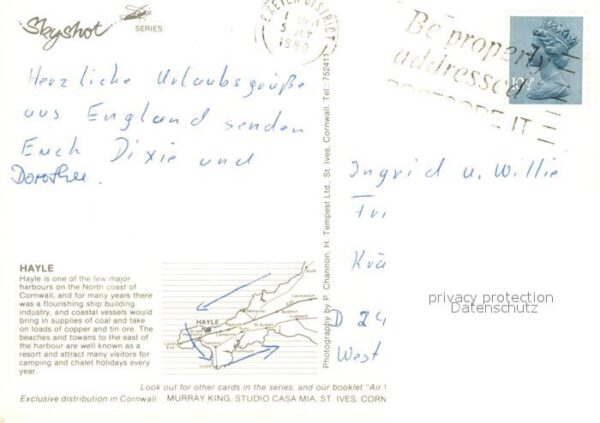 Skyshot
SERIES
EXETER DISTRICT
1980
Be properly
addressed
POSTCODE IT
Herzliche Urlaubsgrüße
aus England senden
Euch Dixie und
Dorothee.
Ingrid u. Willie
D 24
West
HAYLE
Hayle is one of the few major
harbours on the North coast of
Cornwall, and for many years there
was a flourishing ship building
industry, and coastal vessels would
bring in supplies of coal and take
on loads of copper and tin ore. The
beaches and towans to the east of
the harbour are well known as a
resort and attract many visitors for
camping and chalet holidays every
year.
HAYLE
Photography by P. Channon, H. Tempest Ltd., St. Ives, Cornwall. Tel.: 752411
privacy protection
Datenschutz
Look out for other cards in the series, and our booklet "Air
Exclusive distribution in Cornwall: MURRAY KING, STUDIO CASA MIA, ST. IVES, CORN